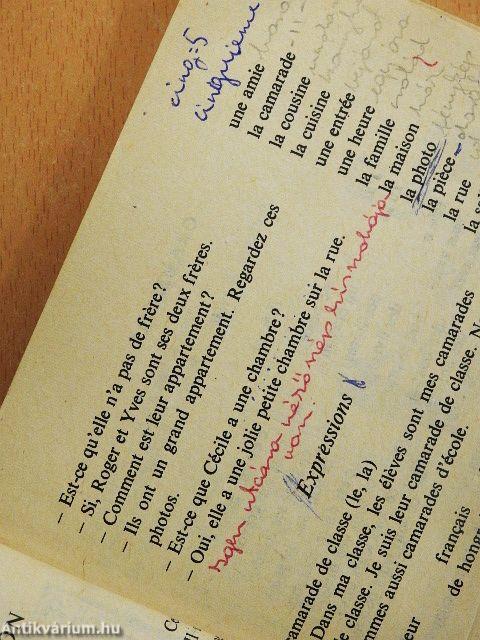 cinq = 5
cinquieme
une amie
la camarade
la cousine
la cuisine
une entrée
une heure
la famille
la maison
la photo
la pièce
la rue
– Est-ce qu'elle n'a pas de frère?
– Si, Roger et Yves sont ses deux frères.
– Comment est leur appartement?
– Ils ont un grand appartement. Regardez ces
photos.
– Est-ce que Cécile a une chambre?
– Oui, elle a une jolie petite chambre sur la rue.
utcára néző
van.
Expressions
camarade de classe (le, la)
Dans ma classe, les élèves sont mes camarades
de classe. Je suis leur camarade de classe.
aussi camarades d'école.
français
de
Antikvárium.hu